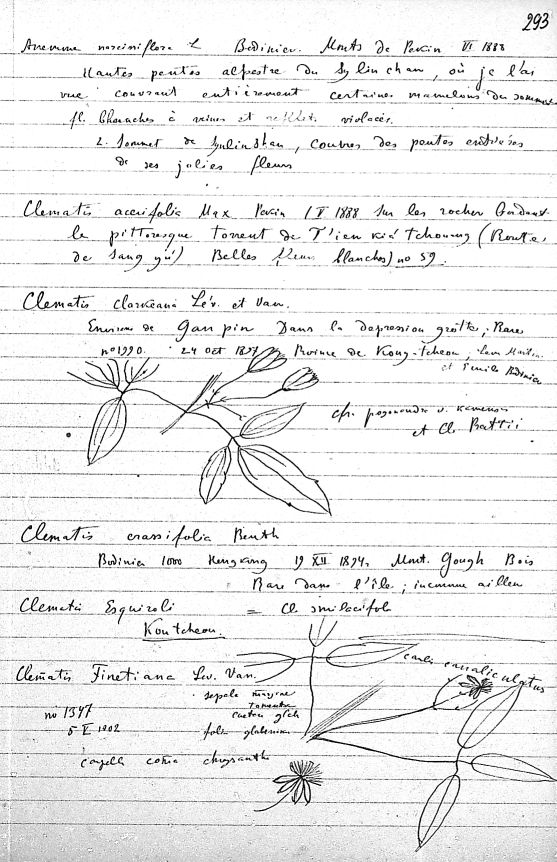 293
Anemone narcissiflora L Bodinier. Monts de Pekin VI 1888
Hautes pentes alpestre du Sylinchan, où je l'ai
vue couvrant entièrement certaines mamelons du sommet
fl. blanches à veines et reflets violacés.
2. Sommet de Sylinshan, couvre des pentes entières
de ses jolies fleurs
Clematis acerifolia Max Pekin 1 V 1888 sur les rocher bordant
le pittoresque torrent de T'ien kia tchoung (Route
de Sang yu) Belles fleurs blanches) no 59.
Clematis Clarkeana Lév. et Van.
Environs de Gan pin Dans la depression grotte. Rare
no 1990. 24 oct 1897 Province de Kouy-tcheou, Leon Martin
et Emile Bodinier
cfr. pogonandra
et Cl. Prattii
Clematis crassifolia Benth
Bodinier 1000 Hongkong 19 XII 1894, Mont. Gough Bois
Rare dans l'île; inconnue ailleu
Clematis Esquiroli = Cl smilacifol
Koutcheou.
cauli canaliculatus
Clematis Finetiana Lev. Van.
sepala margine
tomentu
no 1347
5 V 1902
folia